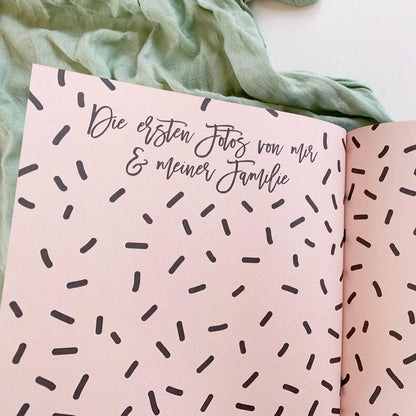 Die ersten Fotos von mir
& meiner Familie